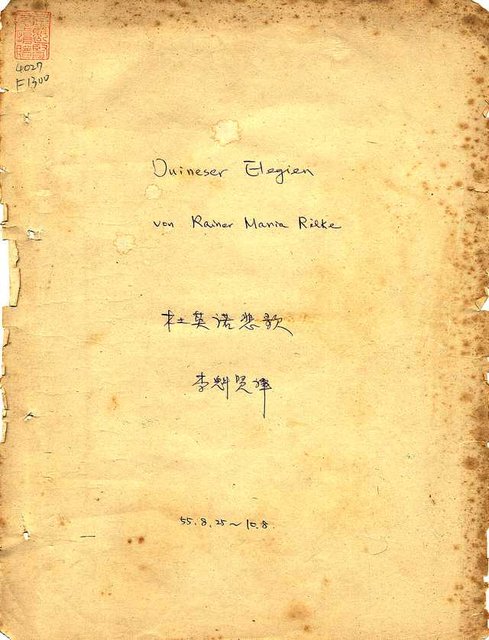 4027
F1300
Duineser Elegien
von Rainer Maria Rilke
杜英諾悲歌
李魁賢譯
55.8.25~10.8.